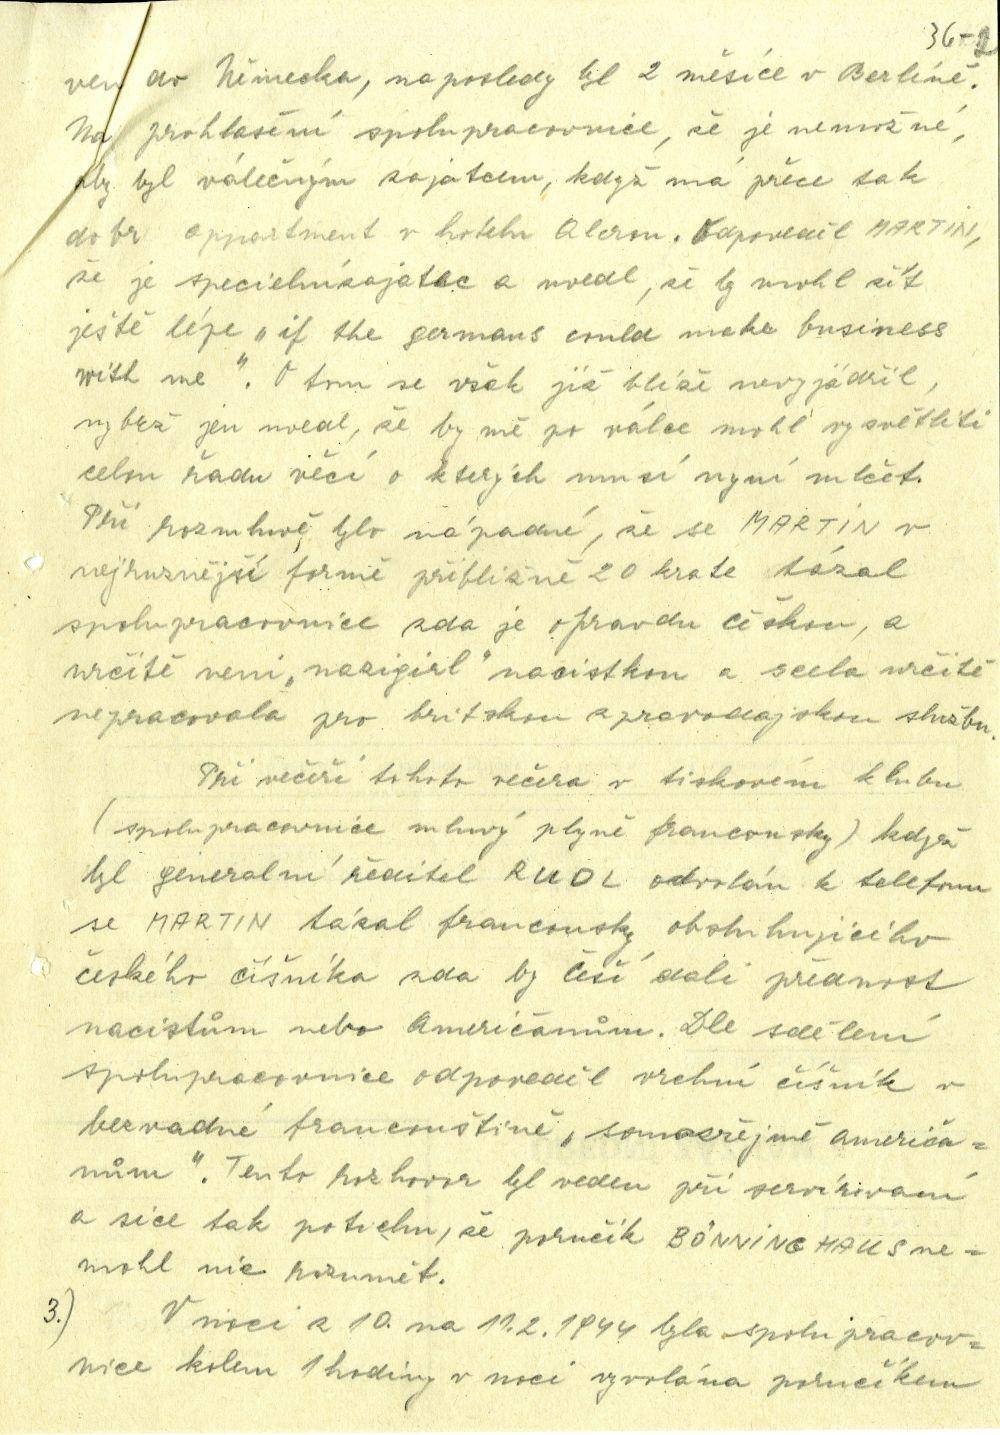 36-2
ven do Německa, naposledy byl 2 měsíce v Berlíně.
Na prohlášení spolupracovnice, že je nemožné,
aby byl válečným zajatcem, když má přece tak
dobr appartment v hotelu Alcron. Odpověděl MARTIN,
že je specielní zajatec a uvedl, že by mohl žít
ještě lépe „if the germans could make business
with me". O tom se však již blíže nevyjádřil,
nybrž jen uvedl, že by mě po válce mohl vysvětliti
celou řadu věcí o kterých musí nyní mlčet.
Při rozmluvě bylo nápadné, že se MARTIN v
nejruznější formě přibližně 20 krate tázal
spolupracovnice zda je opravdu češkou, a
určitě neni „nazigirl" nacistkou a scela určitě
nepracovala pro britskou zpravodajskou službu.
Při večeři tohoto večera v tiskovém klubu
(spolupracovnice mluvý plyně francousky) když
byl generalní ředitel RUDL odvolán k telefonu
se MARTIN tázal francousky obsluhujicího
českého číšníka zda by Češi dali přednost
nacistům nebo Američanům. Dle sdělení
spolupracovnice odpověděl vrchní číšník v
bezvadné francouštině „samozrějmě američa=
nům". Tento rozhovor byl veden při servirovaní
a sice tak potichu, že poručík BÖNNINGHAUS ne=
mohl nic rozumět.
3.) V noci z 10. na 11.2.1944 byla spolupracov=
nice kolem 1 hodiny v noci vyvolána poručíkem